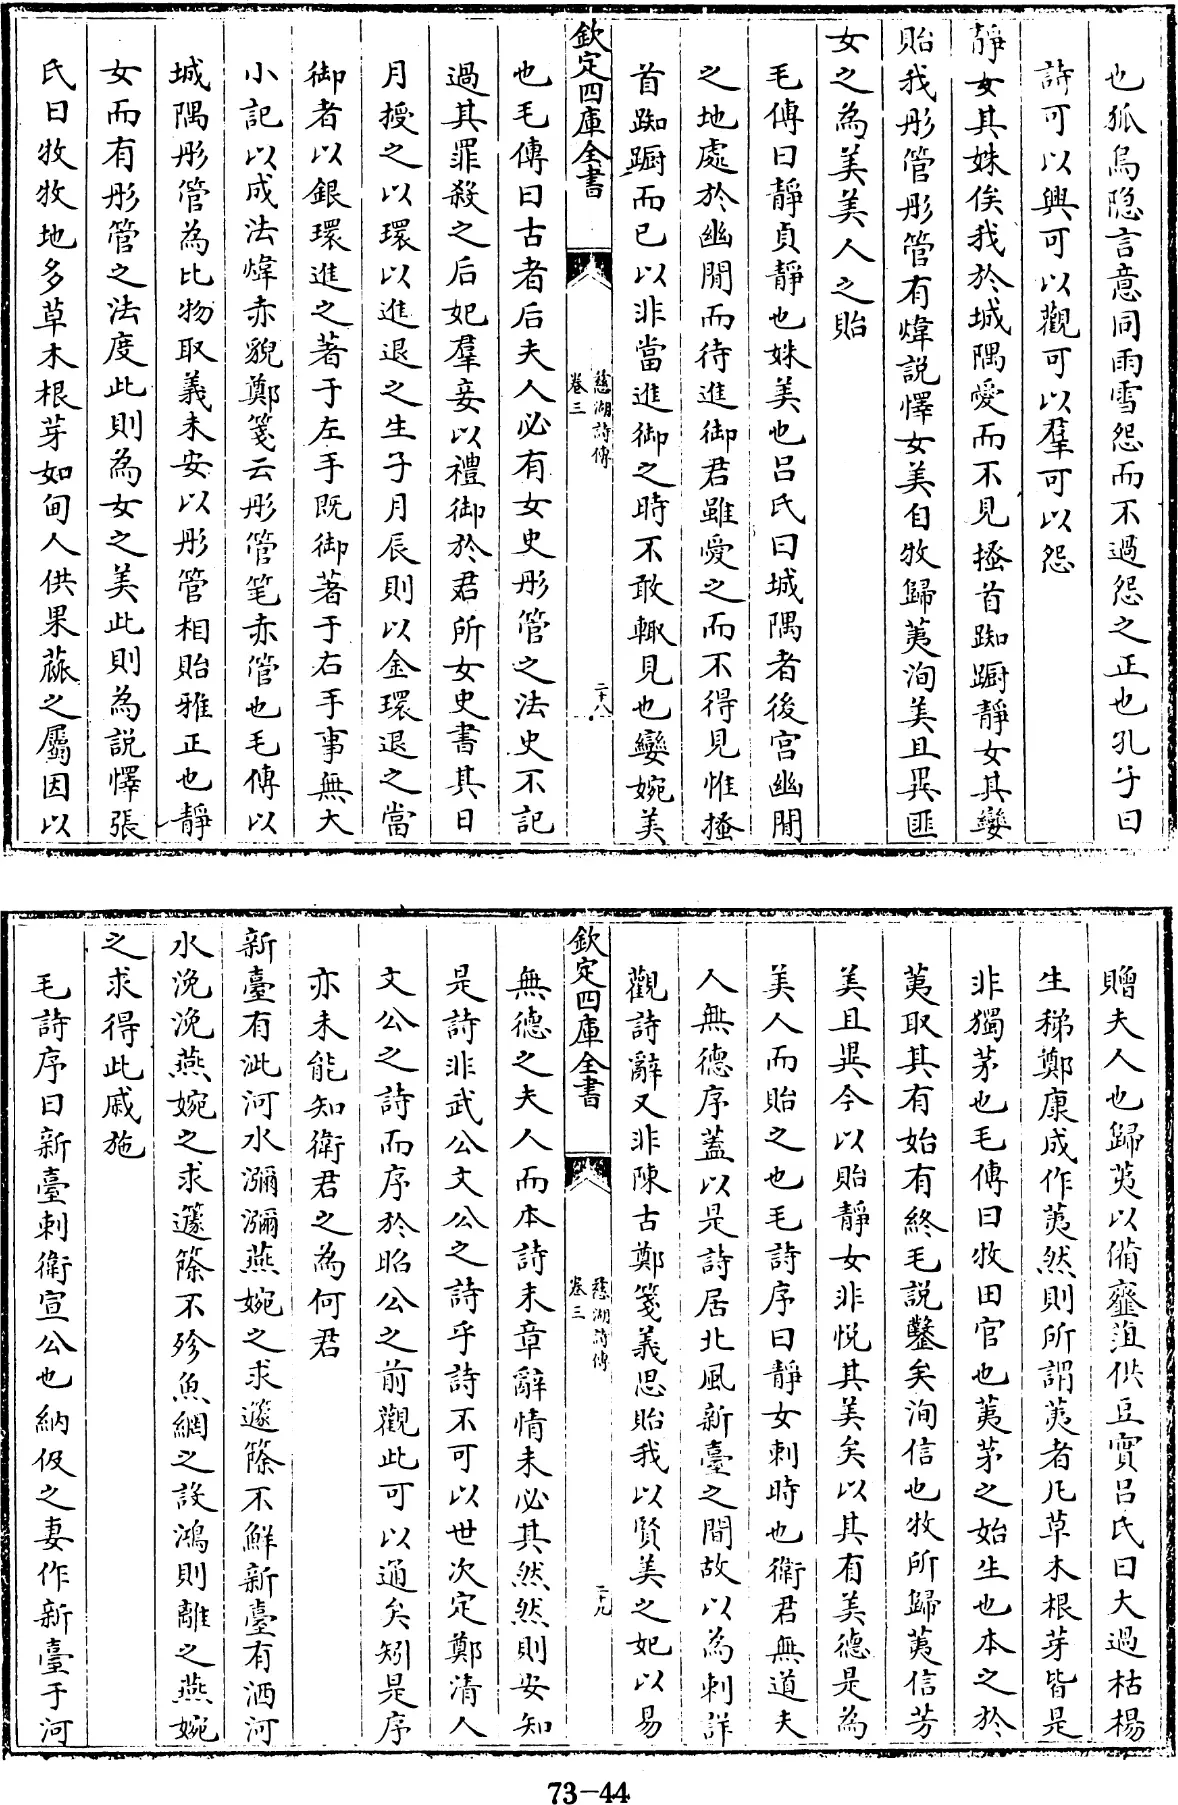 也狐烏隐言意同雨雪怨而不過怨之正也孔子曰
詩可以興可以觀可以羣可以怨
靜女其姝俟我於城隅愛而不見搔首踟蹰靜女其孌
貽我彤管彤管有煒說懌女美自牧歸荑洵美且異匪
女之為美美人之貽
毛傳曰靜貞靜也姝美也吕氏曰城隅者後宫幽閒
之地處於幽閒而待進御君雖愛之而不得見惟搔
首踟蹰而已以非當進御之時不敢輙見也孌婉美
欽定四庫全書
慈湖詩傳
卷三
二十八
也毛傳曰古者后夫人必有女史彤管之法史不記
過其罪殺之后妃羣妾以禮御於君所女史書其日
月授之以環以進退之生子月辰則以金環退之當
御者以銀環進之著于左手既御著于右手事無大
小記以成法煒赤貌鄭箋云彤管筆赤管也毛傳以
城隅彤管為比物取義未安以彤管相貽雅正也靜
女而有彤管之法度此則為女之美此則為說懌張
氏曰牧牧地多草木根芽如甸人供果蓏之屬因以
贈夫人也歸荑以備虀菹供豆實吕氏曰大過枯楊
生稊鄭康成作荑然則所謂荑者凡草木根芽皆是
非獨茅也毛傳曰牧田官也荑茅之始生也本之於
荑取其有始有終毛說鑿矣洵信也牧所歸荑信芳
美且異今以貽靜女非悅其美矣以其有美德是為
美人而貽之也毛詩序曰靜女刺時也衛君無道夫
人無德序蓋以是詩居北風新臺之間故以為刺詳
觀詩辭又非陳古鄭箋義思貽我以賢美之妃以易
欽定四庫全書
慈湖詩傳
卷三
二十九
無德之夫人而本詩末章辭情未必其然然則安知
是詩非武公文公之詩乎詩不可以世次定鄭清人
文公之詩而序於昭公之前觀此可以通矣矧是序
亦未能知衛君之為何君
新臺有泚河水瀰瀰燕婉之求籧篨不鮮新臺有洒河
水浼浼燕婉之求籧篨不殄魚網之設鴻則離之燕婉
之求得此戚施
毛詩序曰新臺刺衛宣公也納伋之妻作新臺于河
73-44